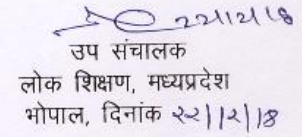 22/12/18
उप संचालक
लोक शिक्षण, मध्यप्रदेश
भोपाल, दिनांक २२/१२/18